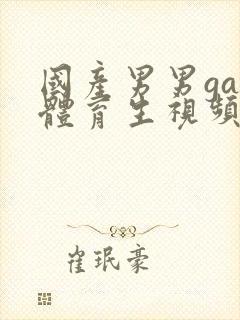 國產男男ga
體育生視頻
崔珉豪